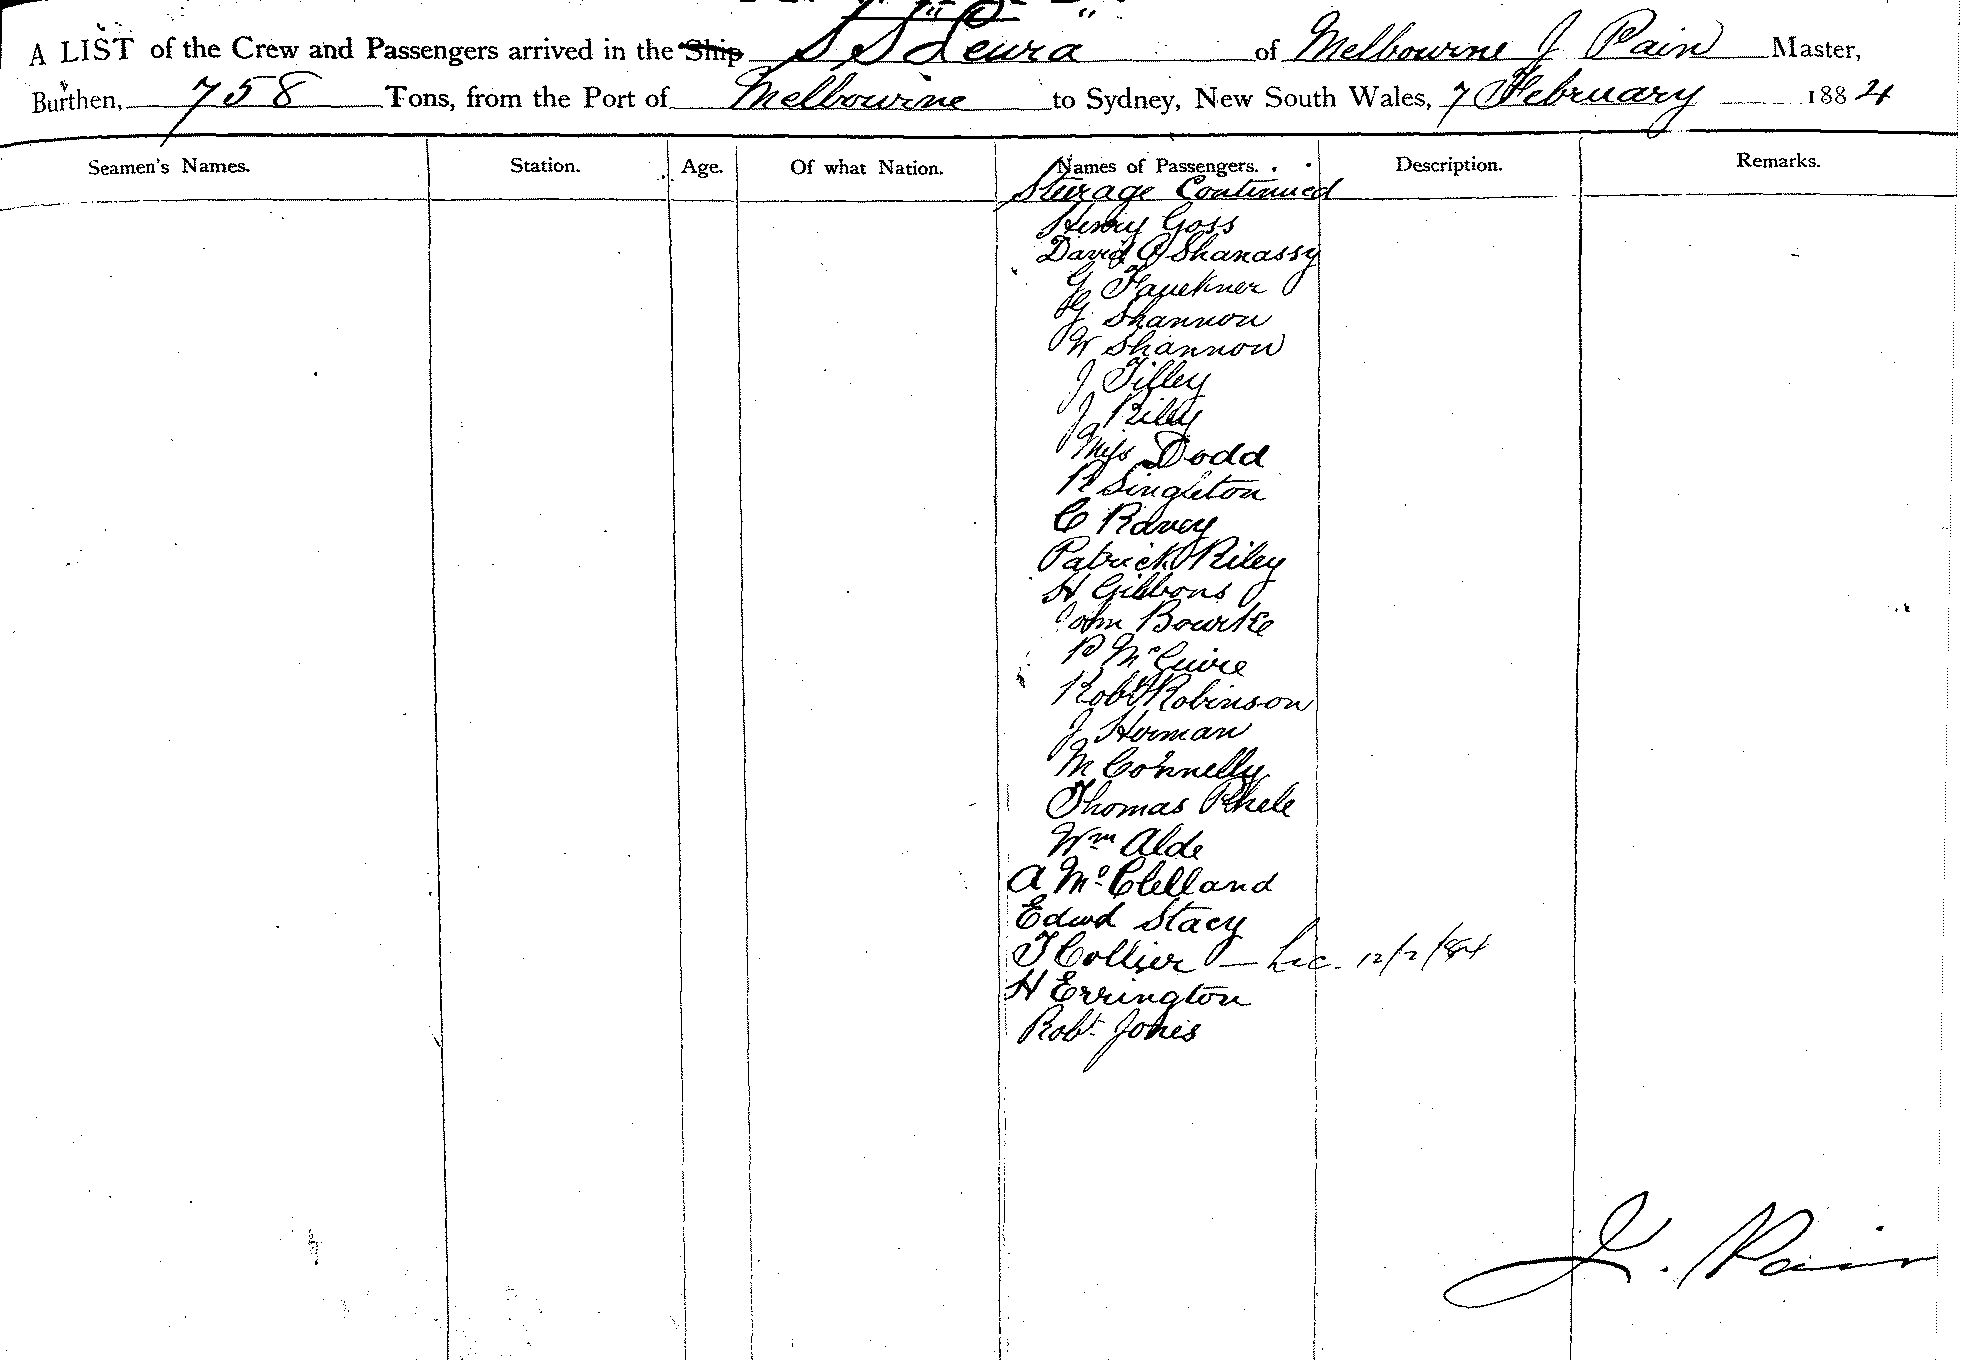 A LIST of the Crew and Passengers arrived in the Ship S S Leura of Melbourne J Pain Master,
Burthen, 758 Tons, from the Port of Melbourne to Sydney, New South Wales, 7 February 1884
Seamen's Names. Station. Age. Of what Nation. Names of Passengers. Description. Remarks.
Steerage Continued
Henry Goss
David O'Shanassy
G Faulkner
G Shannon
W Shannon
J Tilley
J Riley
Miss Dodd
R Singleton
C Ravey
Patrick Riley
H Gibbons
John Bourke
P McGuire
Robt Robinson
J Herman
M Connelly
Thomas
Wm Alde
A McClelland
Edwd Stacy
T Collier — Lic. 12/2/84
H Errington
Robt Jones
J. Pain